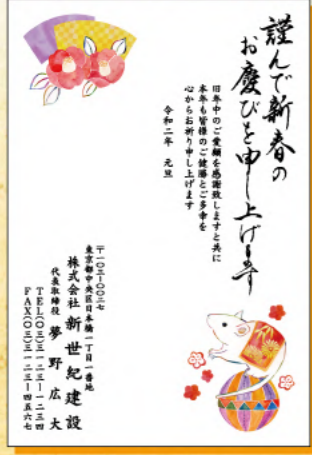 謹んで新春の
お慶びを申し上げます
旧年中のご愛顧を感謝致しますと共に
本年も皆様のご健勝とご多幸を
心からお祈り申し上げます
令和二年 元旦
〒一〇三-〇〇二七
東京都中央区日本橋一丁目一番地
株式会社 新世紀建設
代表取締役 夢野広大
TEL(〇三)三一二三-一二三四
FAX(〇三)三一二三-四五六七